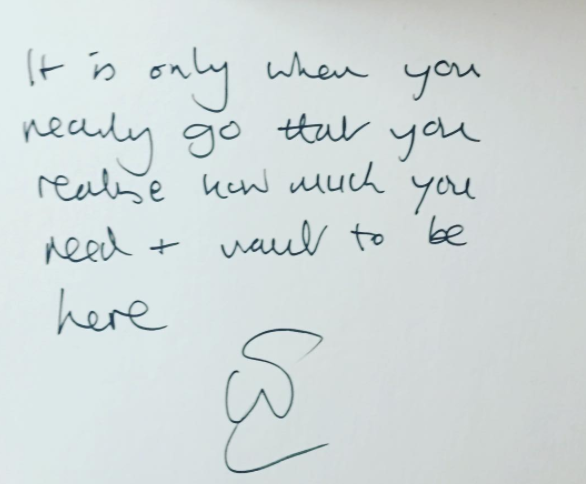 It is only when you
nearly go that you
realise how much you
need + want to be
here